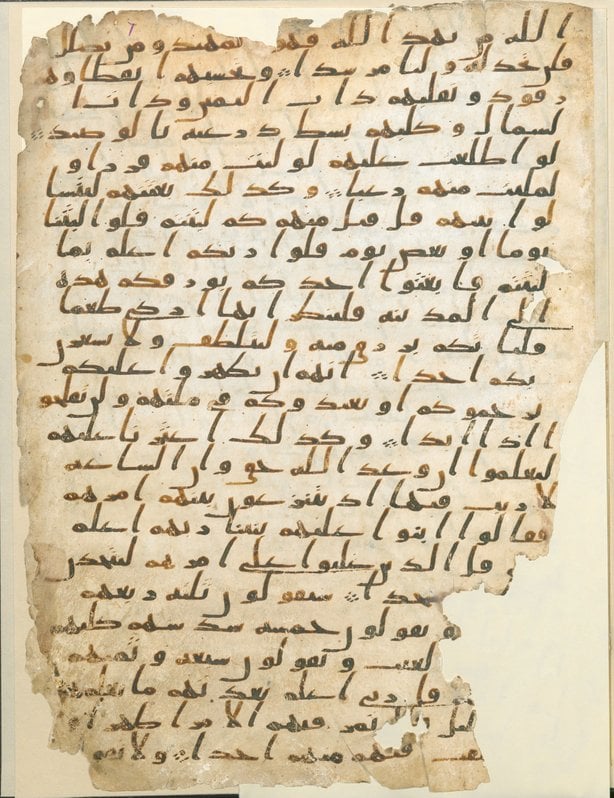 الله من يهد الله فهو المهتد ومن يضلل
فلن تجد له وليا مرشدا وتحسبهم ايقظا وهم
رقود ونقلبهم ذات اليمين وذات ا
لشمال وكلبهم بسط ذرعيه بالوصيد
لو اطلعت عليهم لوليت منهم فررا و
لملئت منهم رعبا وكذلك بعثنهم ليتسا
لوا بينهم قل قئل منهم كم لبثتم قلوا لبثنا
يوما او بعض يوم قلوا ربكم اعلم بما
لبثتم فابعثوا احدكم بورقكم هذه
الى المدينه فلينظر ايها ازكى طعما
فلياتكم برزق منه وليتلطف ولا يشعرن
بكم احدا انهم ان يظهروا عليكم
يرجموكم او يعيدوكم في ملتهم ولن تفلحو
ا اذا ابدا وكذلك اعثرنا عليهم
ليعلموا ان وعد الله حق وان الساعه
لا ريب فيها اذ يتنزعون بينهم امرهم
فقالوا ابنوا عليهم بنينا ربهم اعلم
قل الذين غلبوا على امرهم لنتخذن
جدا سيقولون ثلثه ربعهم
و يقولون خمسه سدسهم كلبهم
لغيب ويقولون سبعه وثمنهم
قل ربي اعلم بعدتهم ما يعلمهم
فيهم الا مرا ظهرا
فيهم منهم احدا ولا تقو